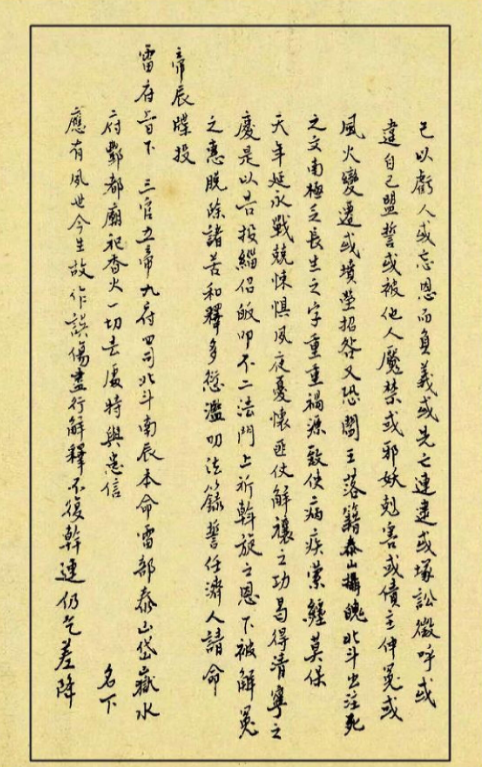 己以虧人或忘恩而負義或先亡連逮或塚訟徵呼或
違自己盟誓或被他人魘禁或邪妖剋害或債主伸冤或
風火變遷或墳塋招咎又恐閻王落籍泰山攝魄北斗出注死
之文南極乏長生之字重重禍源致使病疾縈纏莫保
天年延永戰兢悚惧夙夜憂懷匪仗解禳之功曷得清寧之
慶是以告投緇侶皈叩不二法門上祈斡旋之恩下被解冤
之惠脫除諸苦和釋多愆濫叨法籙誓任濟人請命
帝辰牒投
雷府 下 三官五帝九府四司北斗南辰本命雷部泰山岱嶽水
府酆都廟祀香火一切去處特與患信 名下
應有夙世今生故作誤傷盡行解釋不復幹連仍乞差降